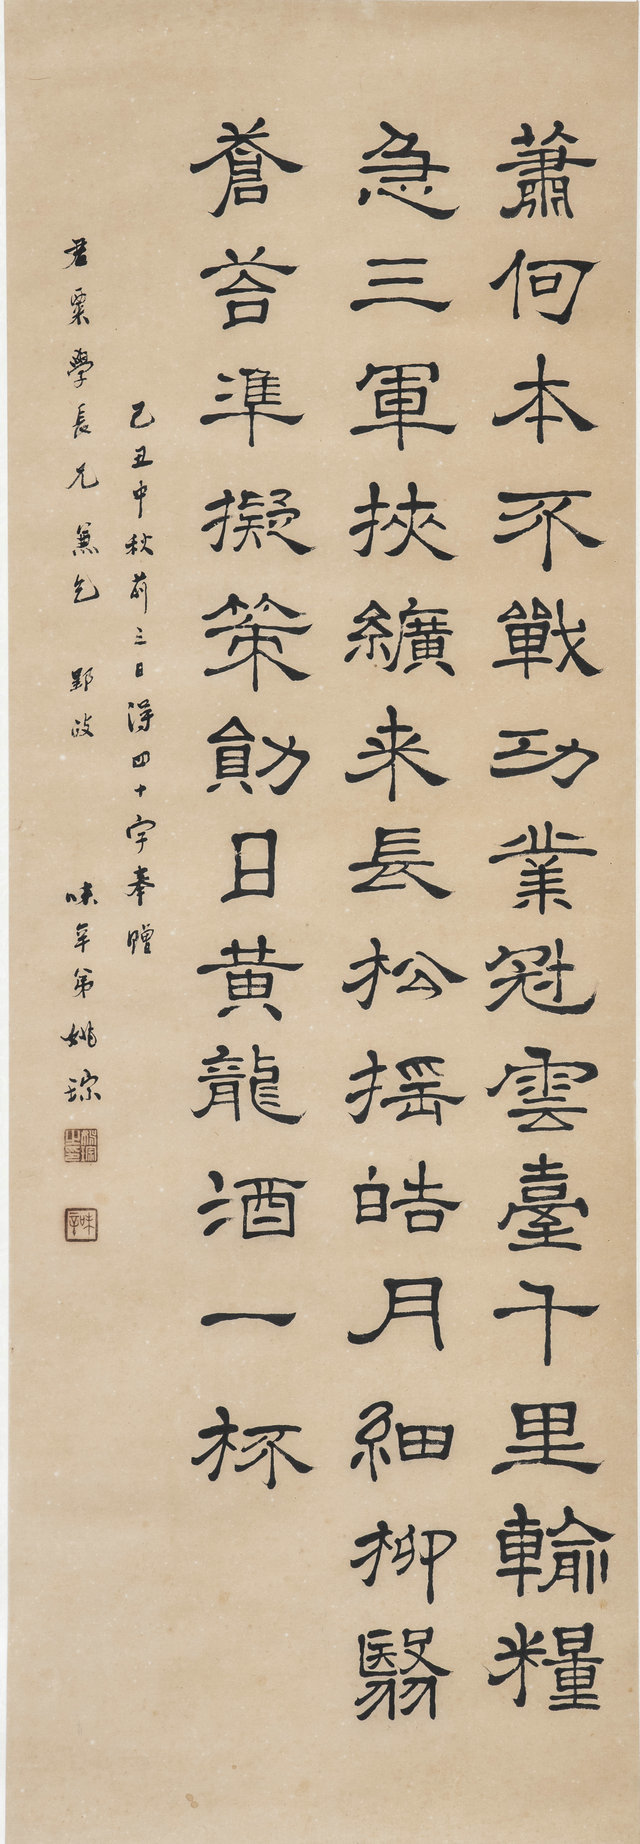 蕭何本不戰功業冠雲臺千里輸糧
急三軍挾纊来長松摇皓月細柳翳
蒼苔準擬策勛日黄龍酒一杯
己丑中秋前三日得四十字奉贈
君粟學長兄兼乞 郢政 味辛弟姚琮
姚琮之章
味辛